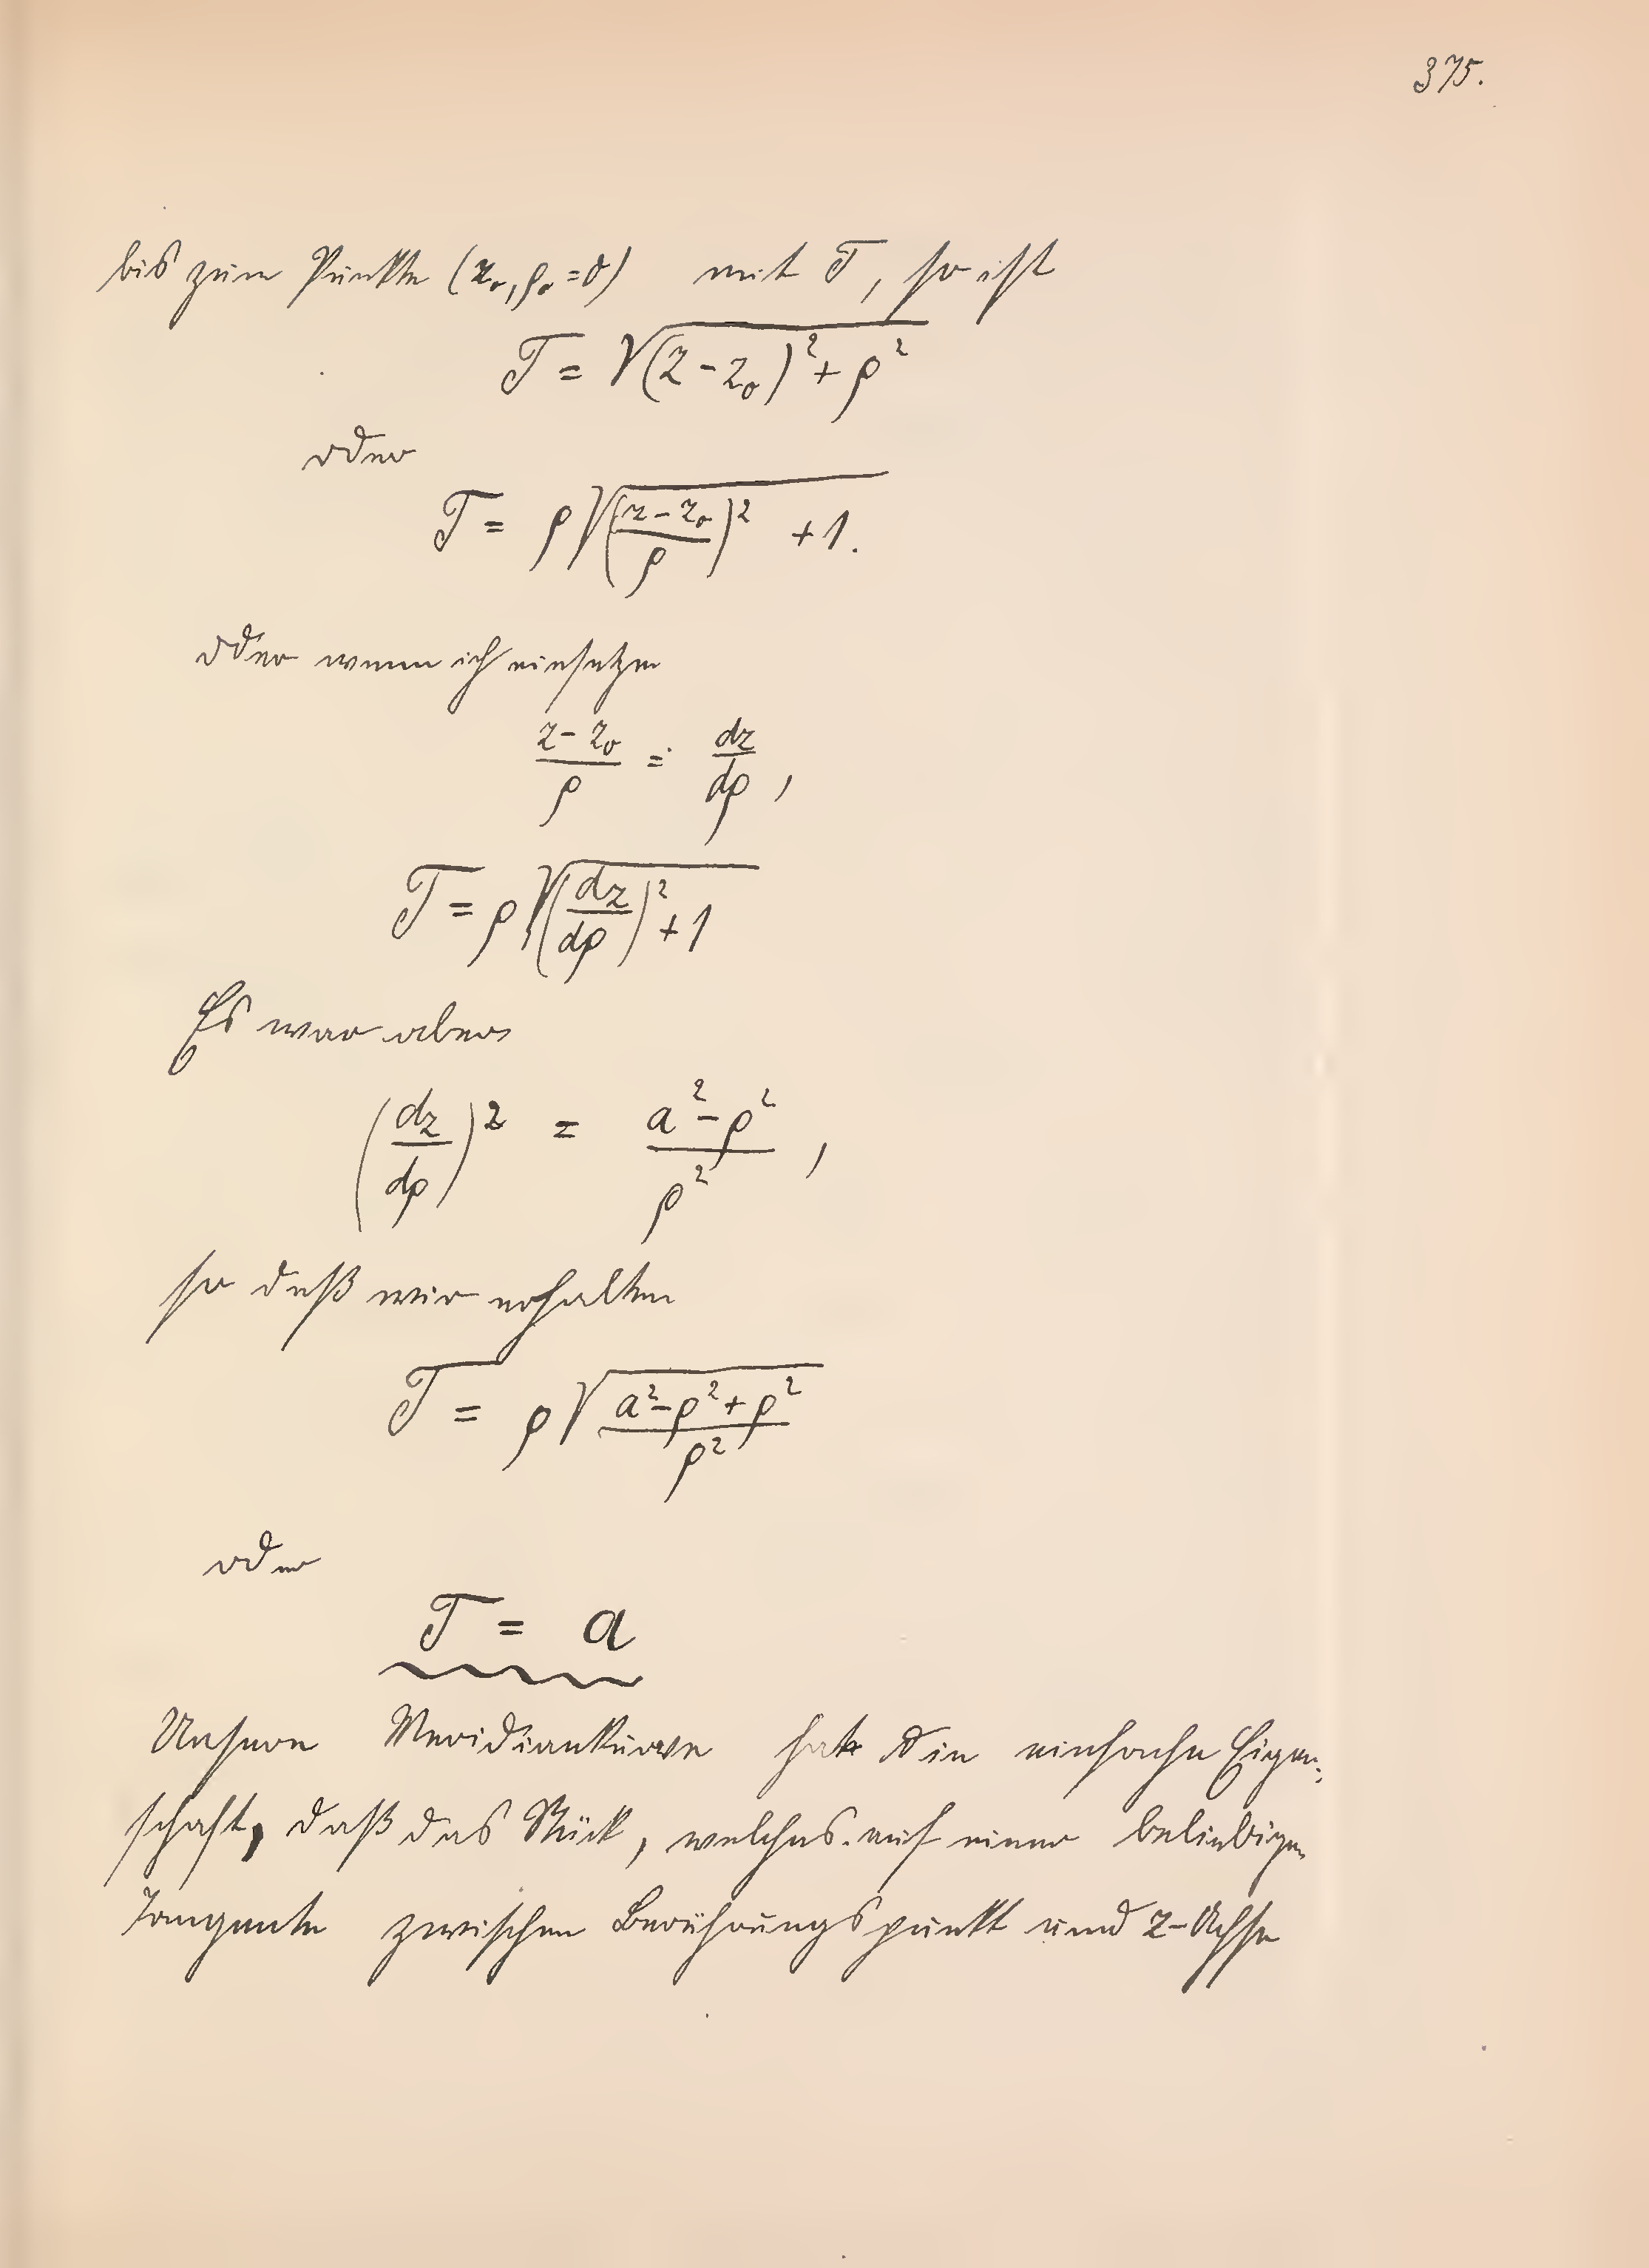 375.
bis zum Punkte (z₀, ρ₀ = 0) mit T, so ist
T = √((z - z₀)² + ρ²)
oder
T = ρ √(((z - z₀)/ρ)² + 1).
oder wenn ich einsetze
(z - z₀)/ρ = dz/dρ,
T = ρ √((dz/dρ)² + 1)
Es war aber
(dz/dρ)² = (a² - ρ²)/ρ²,
so daß wir erhalten
T = ρ √((a² - ρ² + ρ²)/ρ²)
oder
T = a
Unsere Meridiankurve hat die einfache Eigen-
schaft, daß das Stück, welches auf einer beliebigen
Tangente zwischen Berührungspunkt und z-Achse